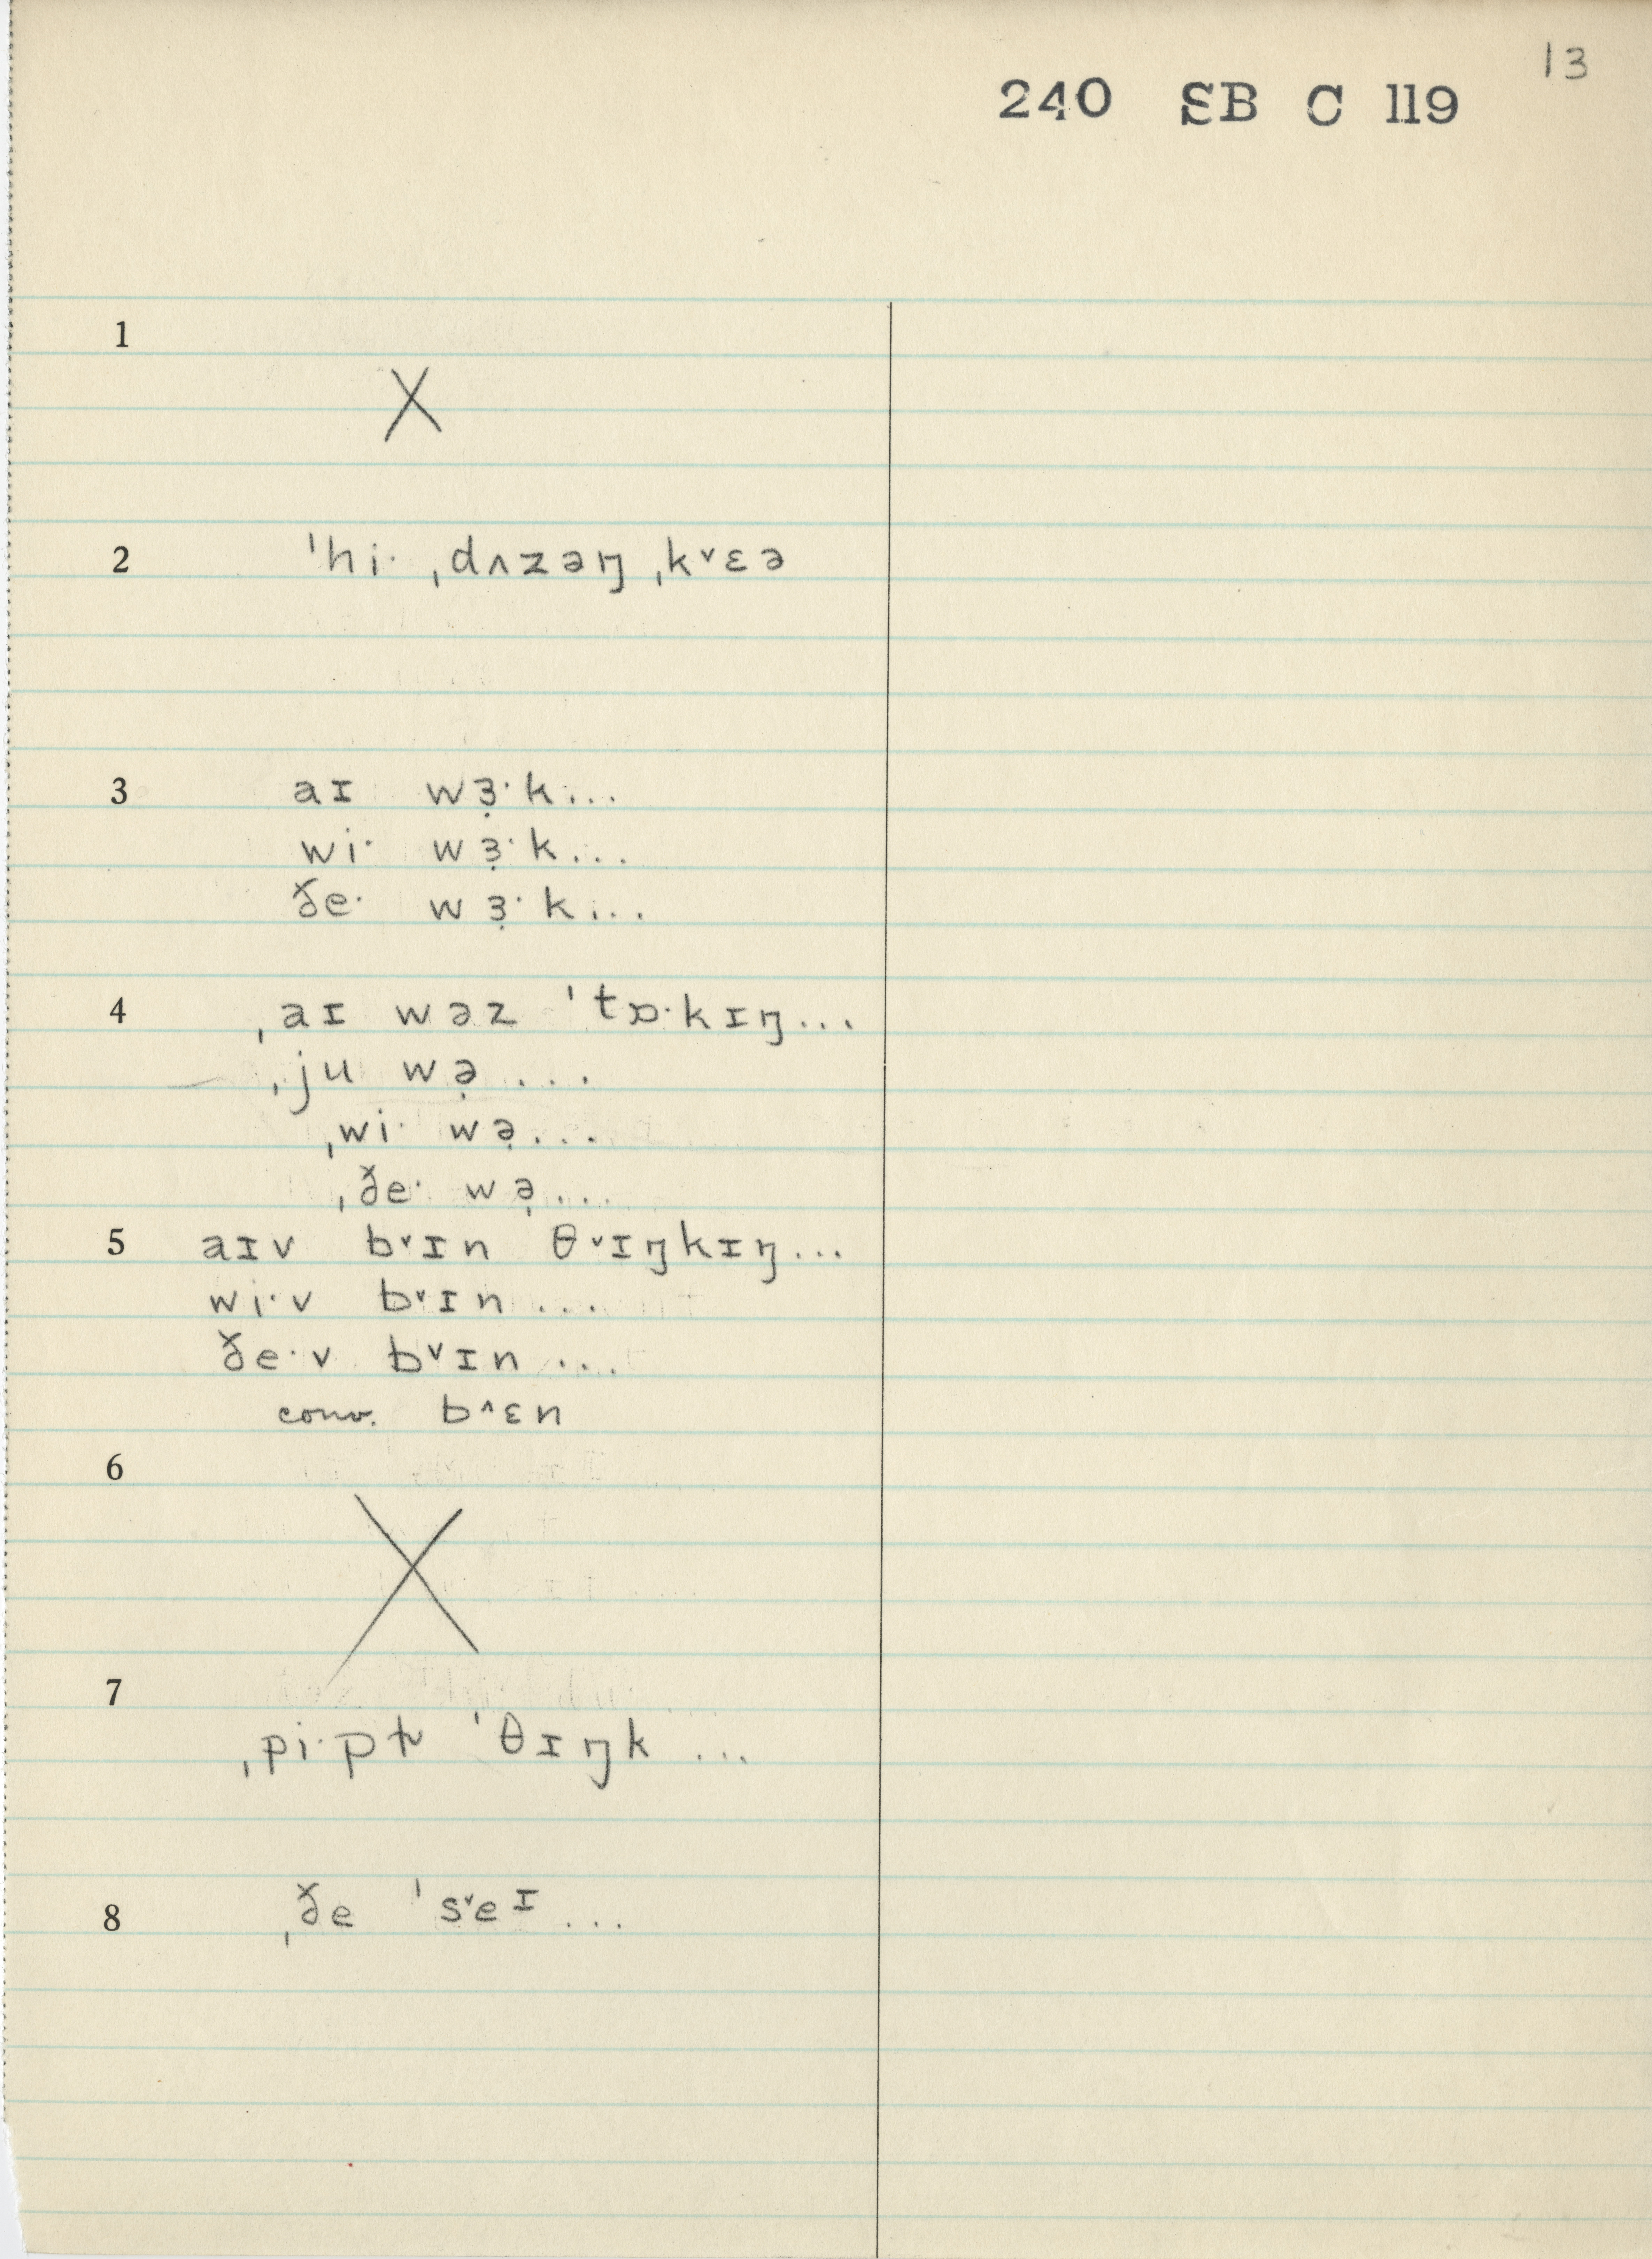 13
240 SB C 119
1
X
2 ˈhiˑ ˌdʌzəŋ ˌk˅ɛə
3 aɪ wɜ̣ˑk...
wiˑ wɜ̣ˑk...
ðeˑ wɜ̣ˑk...
4 ˌaɪ wəz ˈtɒˑkɪŋ...
ˌju wə̣...
ˌwiˑ wə̣...
ˌðeˑ wə̣...
5 aɪv b˅ɪn θ˅ɪŋkɪŋ...
wiˑv b˅ɪn...
ðeˑv b˅ɪn...
conv. b˄ɛn
6
X
7
ˌpiˑpɫ ˈθɪŋk...
8 ˌðe ˈs˅eɪ...